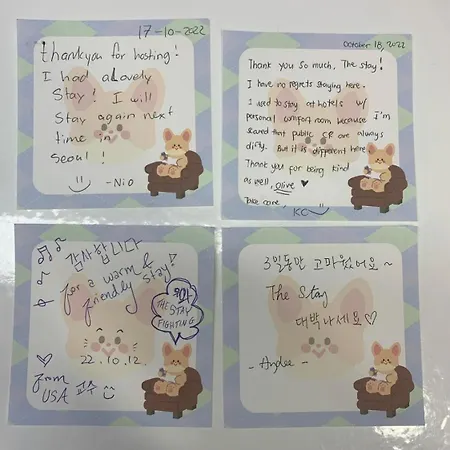 17-10-2022
thankyou for hosting!
I had a Lovely
Stay! I will
Stay again next
time in
Seoul!
-Nio
October 18, 2022
Thank you so much, The Stay!
I have no regrets staying here.
I used to stay at hotels w/
personal comfort room because I'm
scared that public CR are always
dirty. But it is different here.
Thank you for being kind
as well, Olive ♥
Take care,
KC
감사합니다
for a warm &
friendly stay!
THE STAY
FIGHTING
22.10.12.
from
USA 교수
3일동안 고마웠어요~
The Stay
대박나세요♡